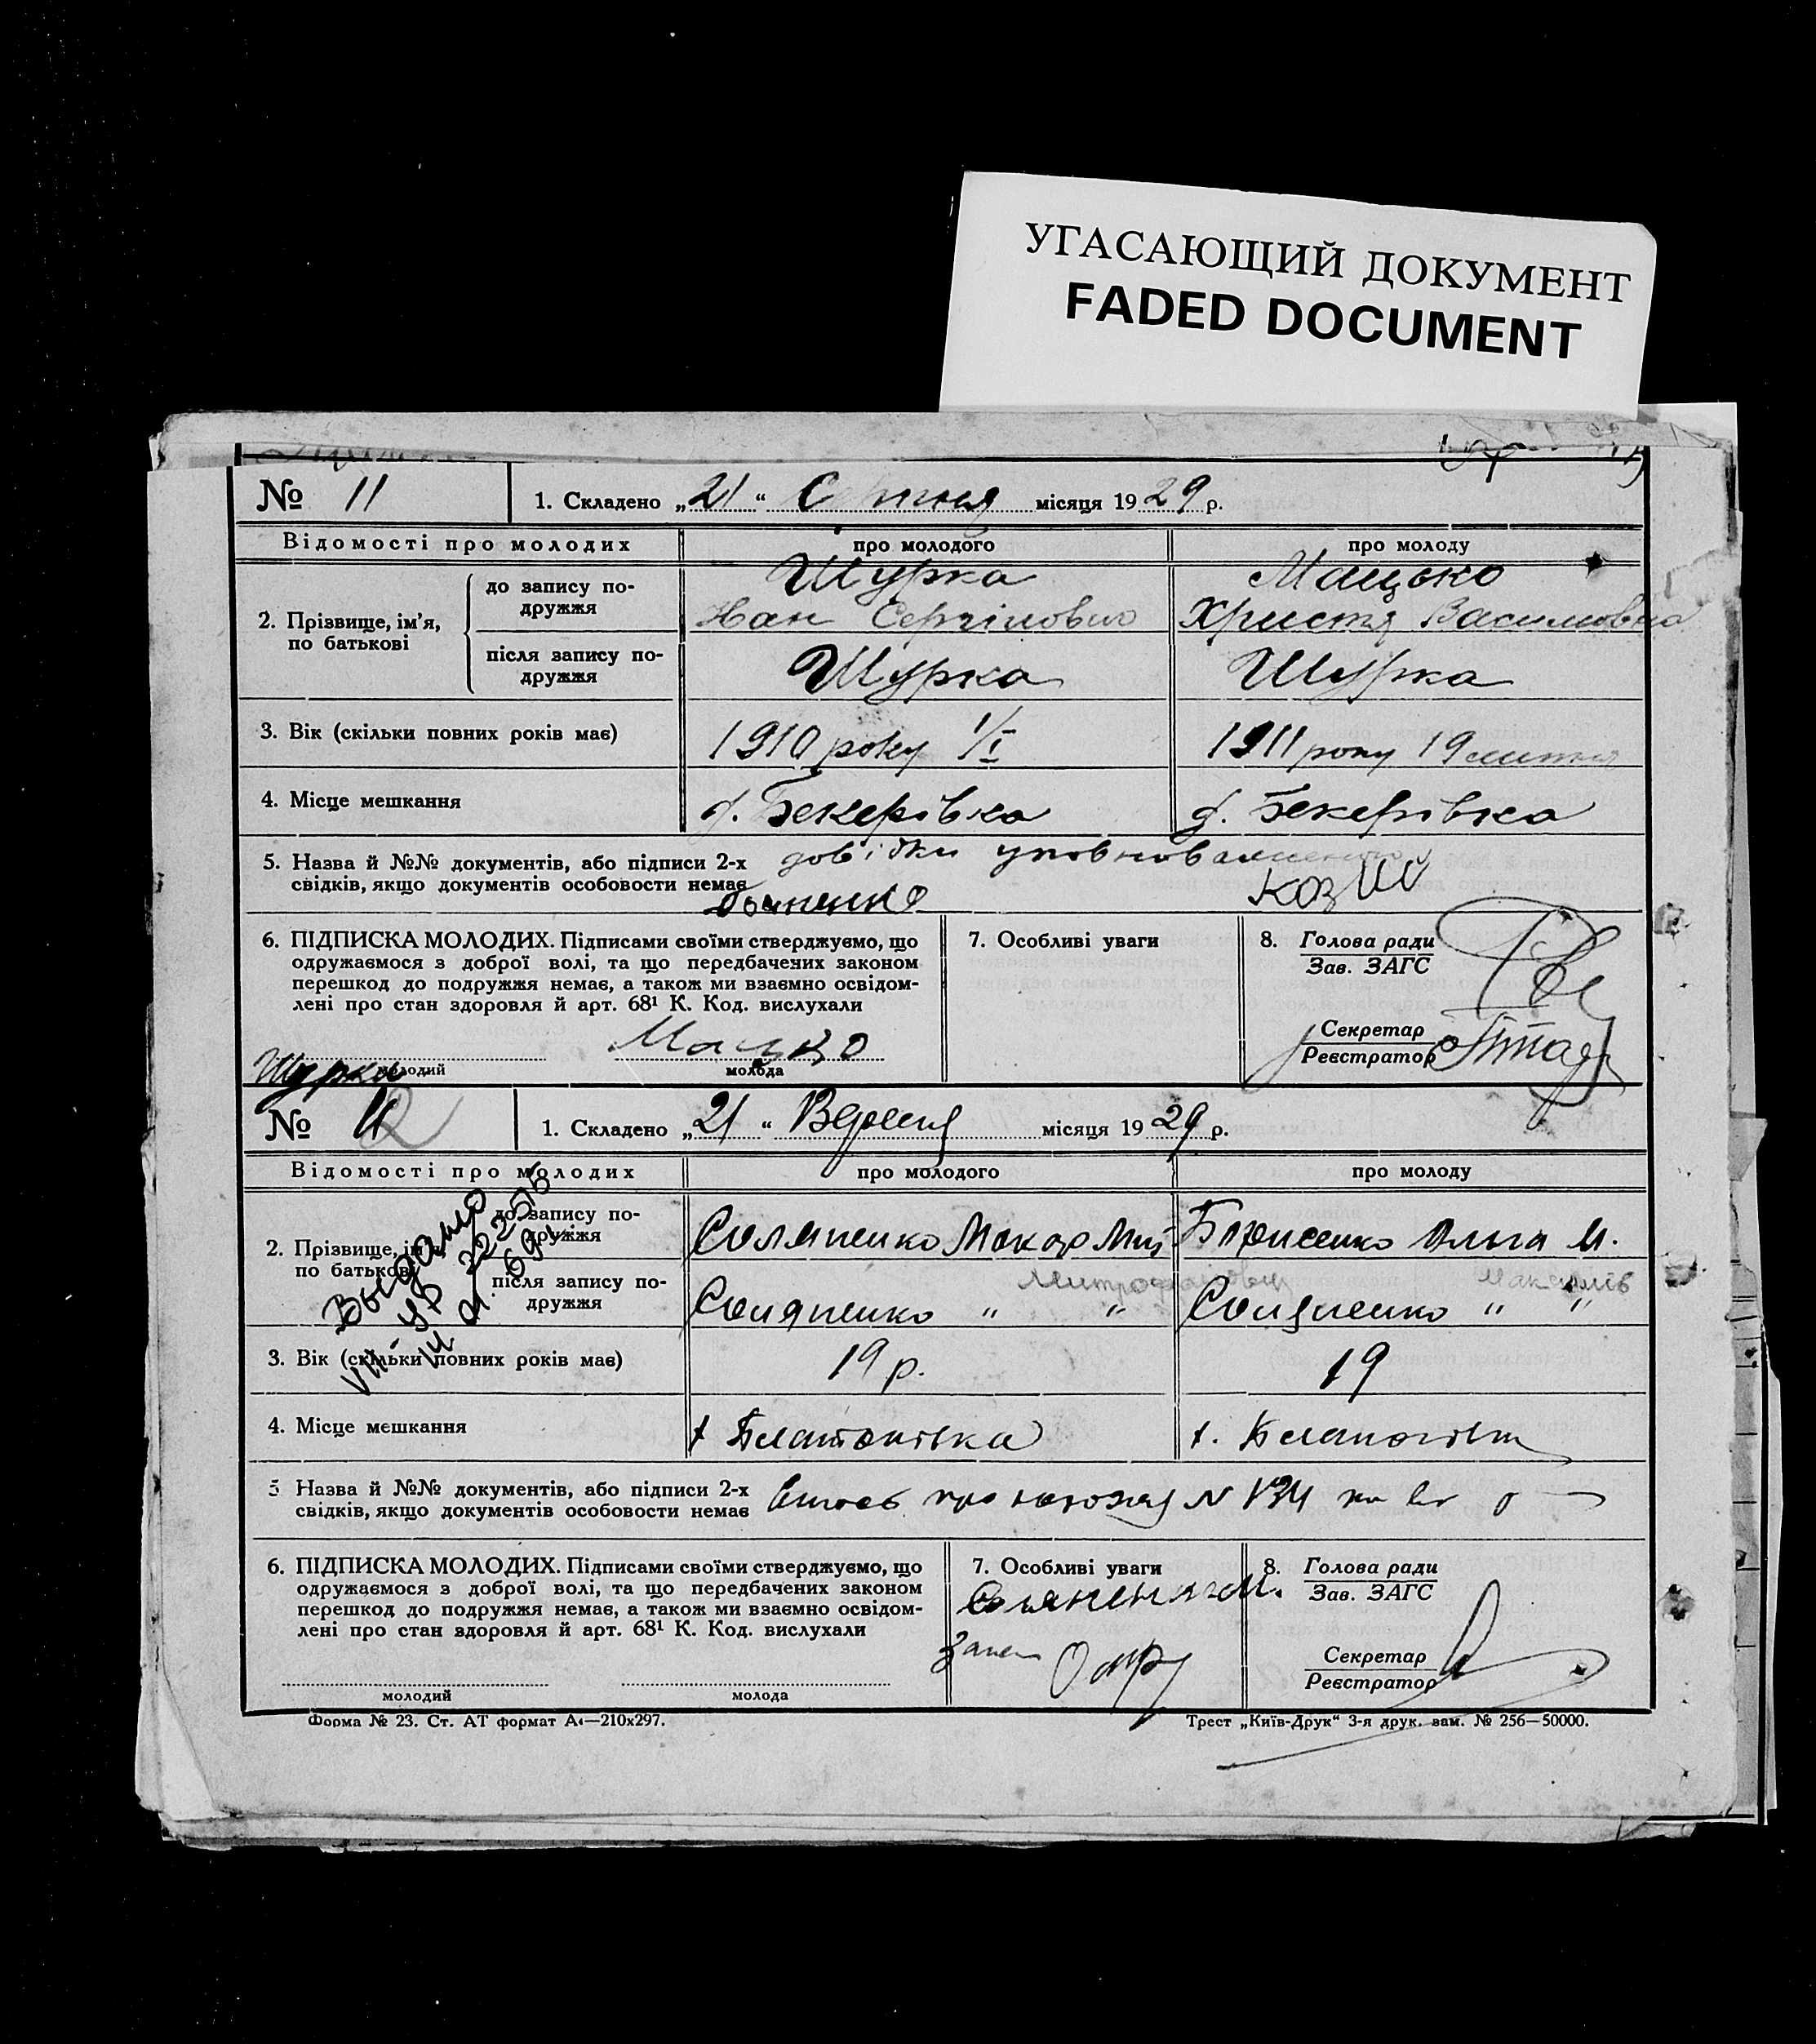 УГАСАЮЩИЙ ДОКУМЕНТ
FADED DOCUMENT
№ 11
1. Складено „21“ Серпня місяця 1929 р.
Відомості про молодих
про молодого
про молоду
2. Прізвище, ім'я, по батькові
до запису подружжя
Шурка
Мацько
Христя Василювна
після запису подружжя
Шурка
Шурка
3. Вік (скільки повних років має)
1910 року 1/I
1911 року 19
4. Місце мешкання
х. Бекерівка
х. Бекерівка
5. Назва й №№ документів, або підписи 2-х
свідків, якщо документів особовости немає
довідки
6. ПІДПИСКА МОЛОДИХ. Підписами своїми стверджуємо, що
одружаємося з доброї волі, та що передбачених законом
перешкод до подружжя немає, а також ми взаємно освідом-
лені про стан здоровля й арт. 68¹ К. Код. вислухали
Шурка
молодий
Мацко
молода
7. Особливі уваги
8. Голова ради
Зав. ЗАГС
Секретар
Реєстратор
№
1. Складено „21“ Вересня місяця 1929 р.
Відомості про молодих
про молодого
про молоду
2. Прізвище, ім'я, по батькові
Выдано
до запису подружжя
Соляненко Макар Мит
Борисенко Ольга М.
Митрофанович
Макарівн
після запису подружжя
Соляненко " "
Соляненко " "
3. Вік (скільки повних років має)
19 р.
19
4. Місце мешкання
5 Назва й №№ документів, або підписи 2-х
свідків, якщо документів особовости немає
N 134
6. ПІДПИСКА МОЛОДИХ. Підписами своїми стверджуємо, що
одружаємося з доброї волі, та що передбачених законом
перешкод до подружжя немає, а також ми взаємно освідом-
лені про стан здоровля й арт. 68¹ К. Код. вислухали
молодий
молода
7. Особливі уваги
8. Голова ради
Зав. ЗАГС
Секретар
Реєстратор
Форма № 23. Ст. АТ формат А4—210х297.
Трест „Київ-Друк“ 3-я друк. зам. № 256—50000.